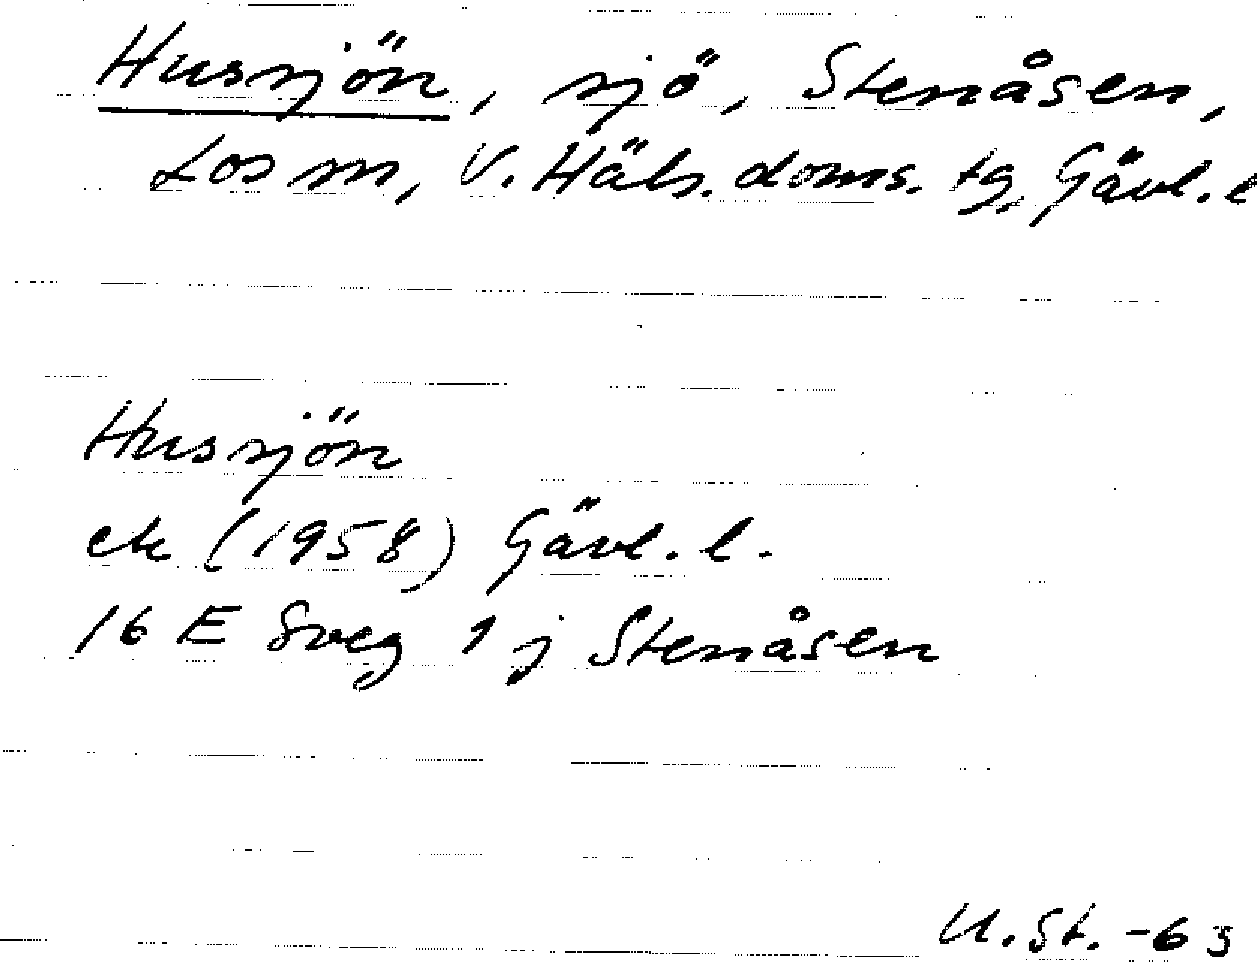 Hussjön, sjö, Stenåsen,
Los sn, V. Häls. doms. tg, Gävl. l
Hussjön
ek (1958) Gävl. l.
16 E Sveg 1 j Stenåsen
U. St. -63